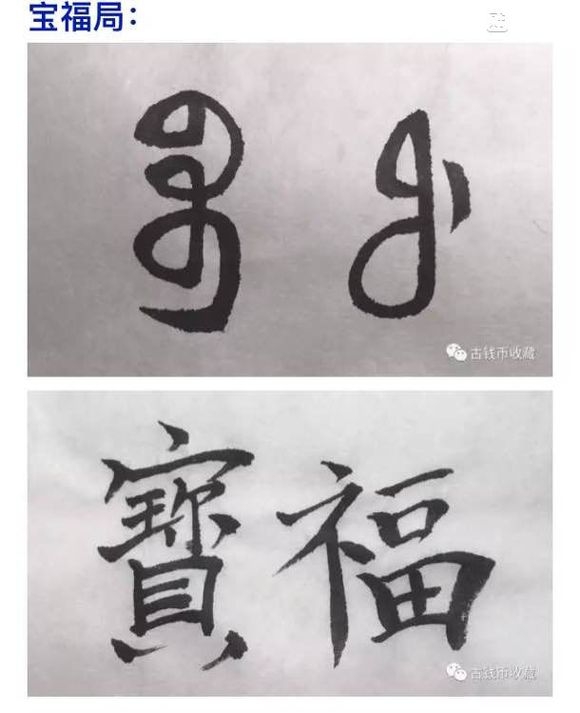 宝福局：
ᠪᠣᠣ ᡶᡠ
古钱币收藏
寶福
古钱币收藏